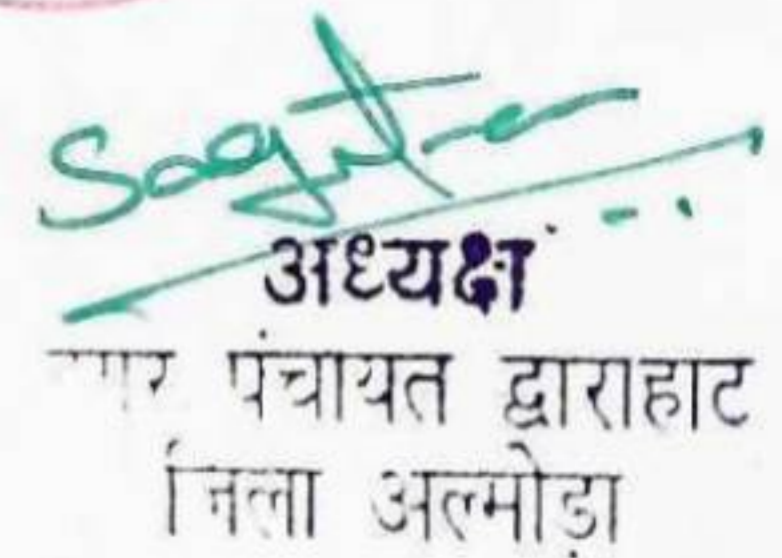 अध्यक्ष
नगर पंचायत द्वाराहाट
जिला अल्मोड़ा